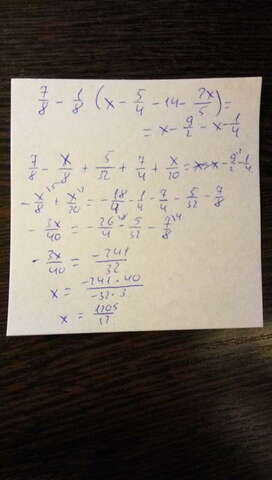 7/8 - 1/8 (x - 5/4 - 14 - 2x/5) =
= x - 9/2 - x - 1/4
7/8 - x/8 + 5/32 + 7/4 + x/20 = x - 9/2 - 1/4
- x/8 + x/20 = - 18/4 - 1/4 - 7/4 - 5/32 - 7/8
- 3x/40 = - 26/4 - 5/32 - 7/8
- 3x/40 = -241/32
x = -241 · 40/-32 · 3
x = 1205/12